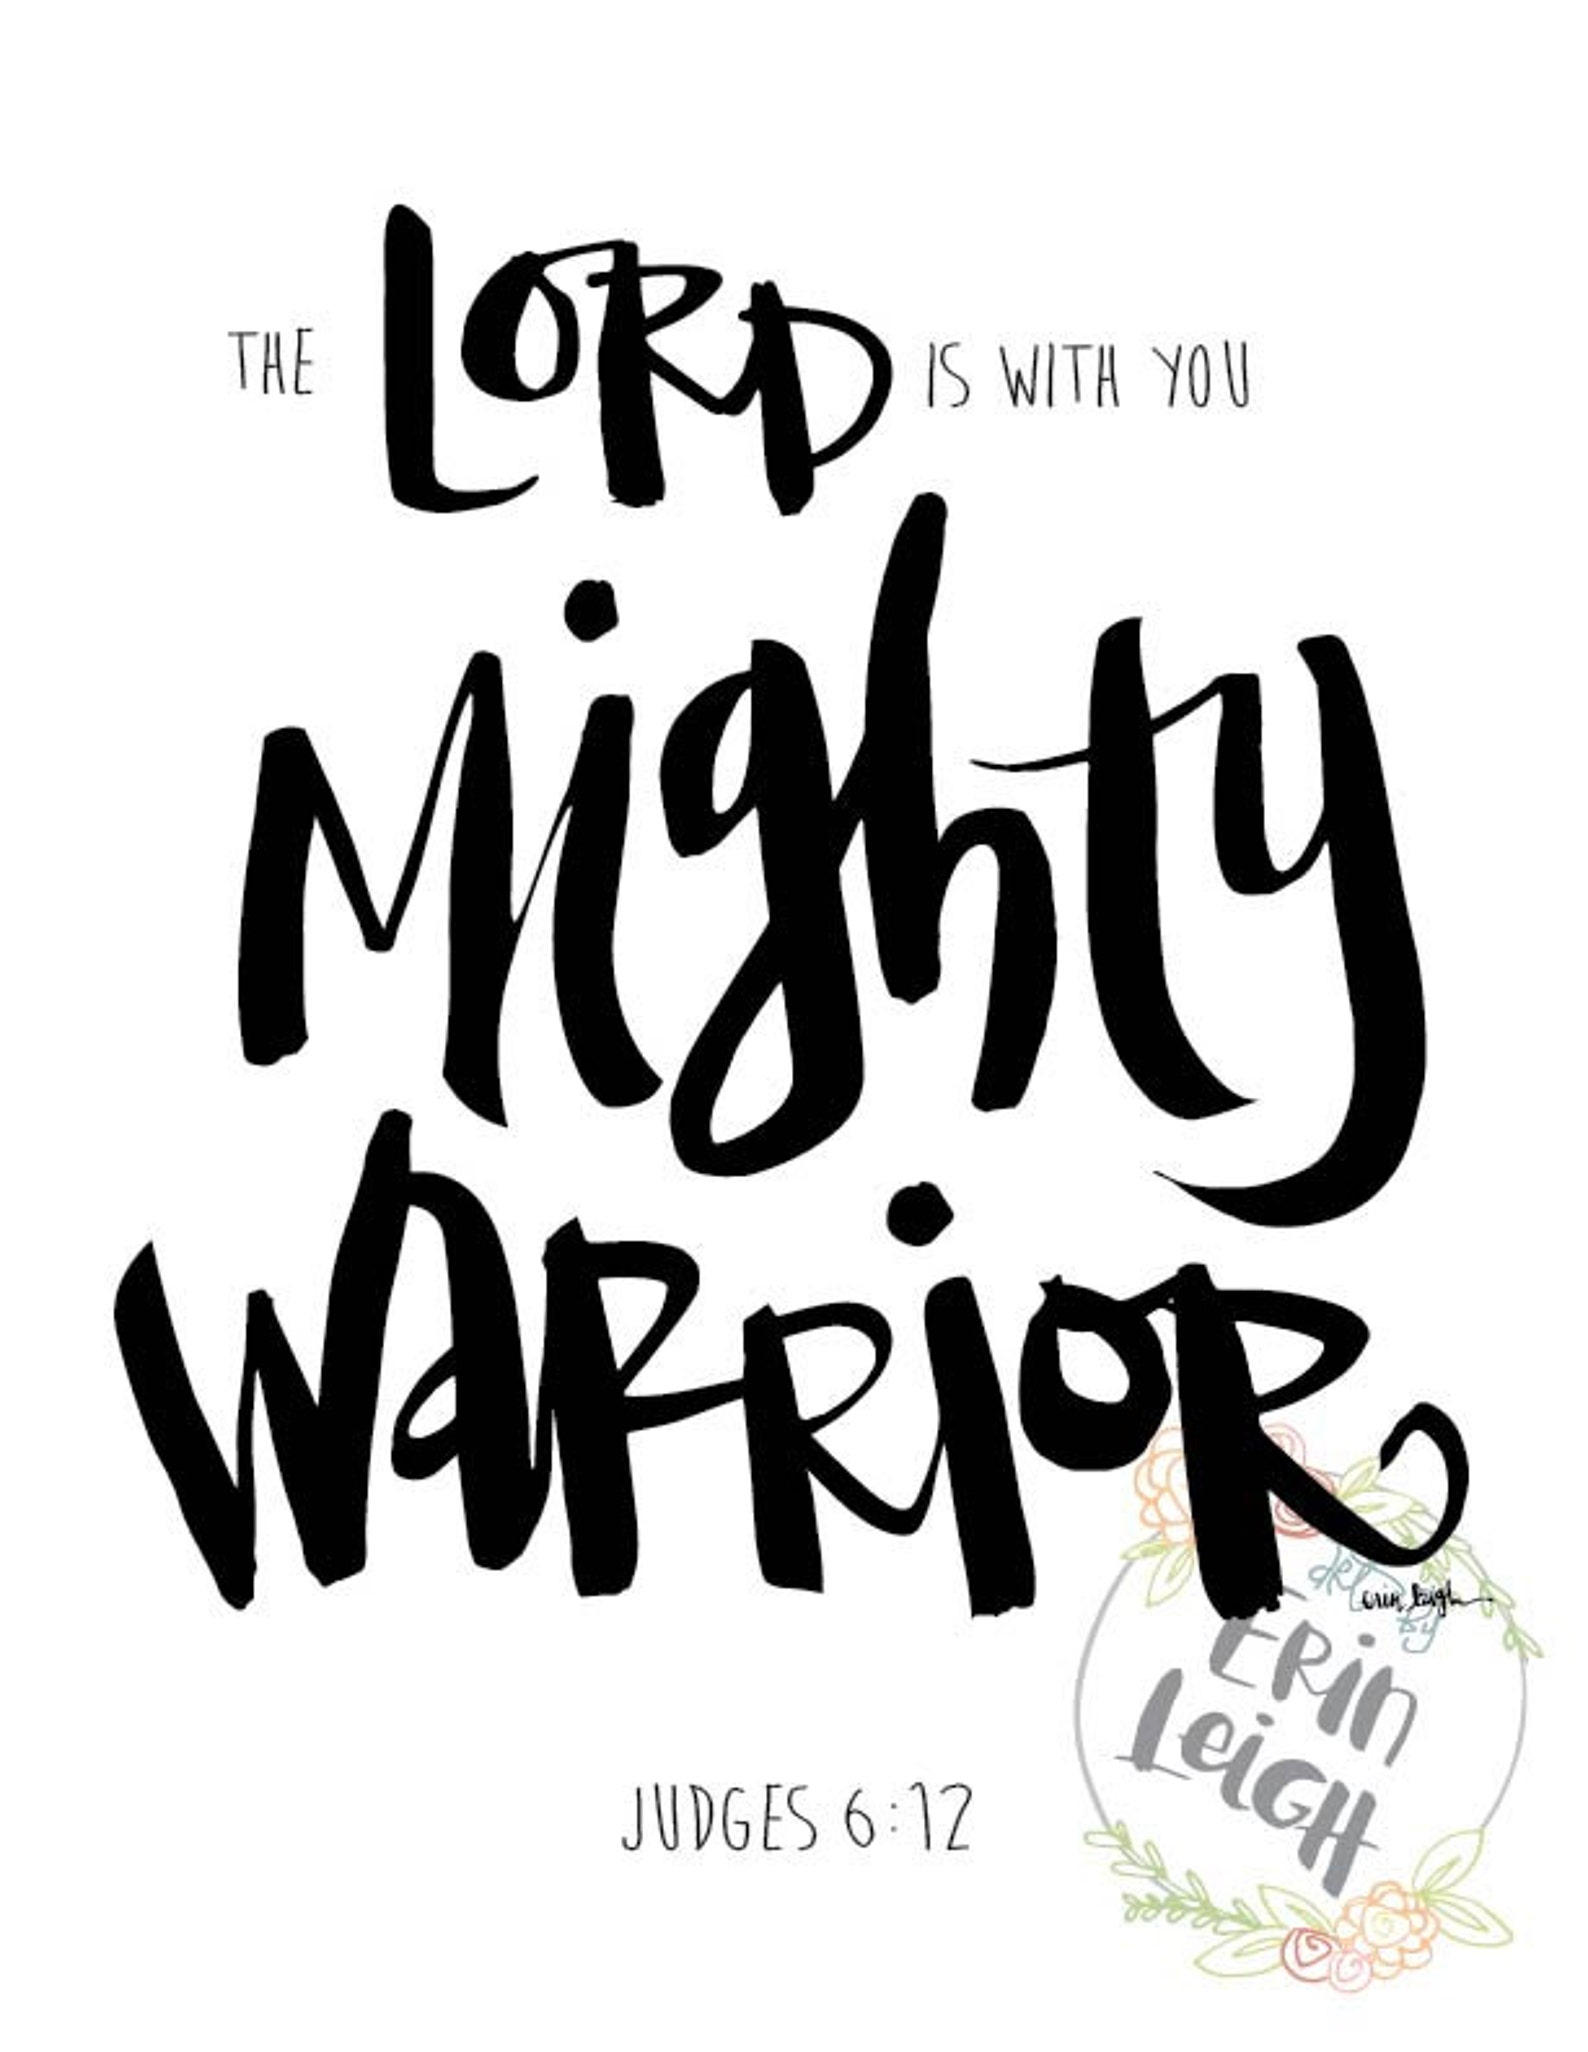 THE LORD IS WITH YOU
Mighty
WARRiOR
erin leigh
art
By
ERin
LeiGH
JUDGES 6:12